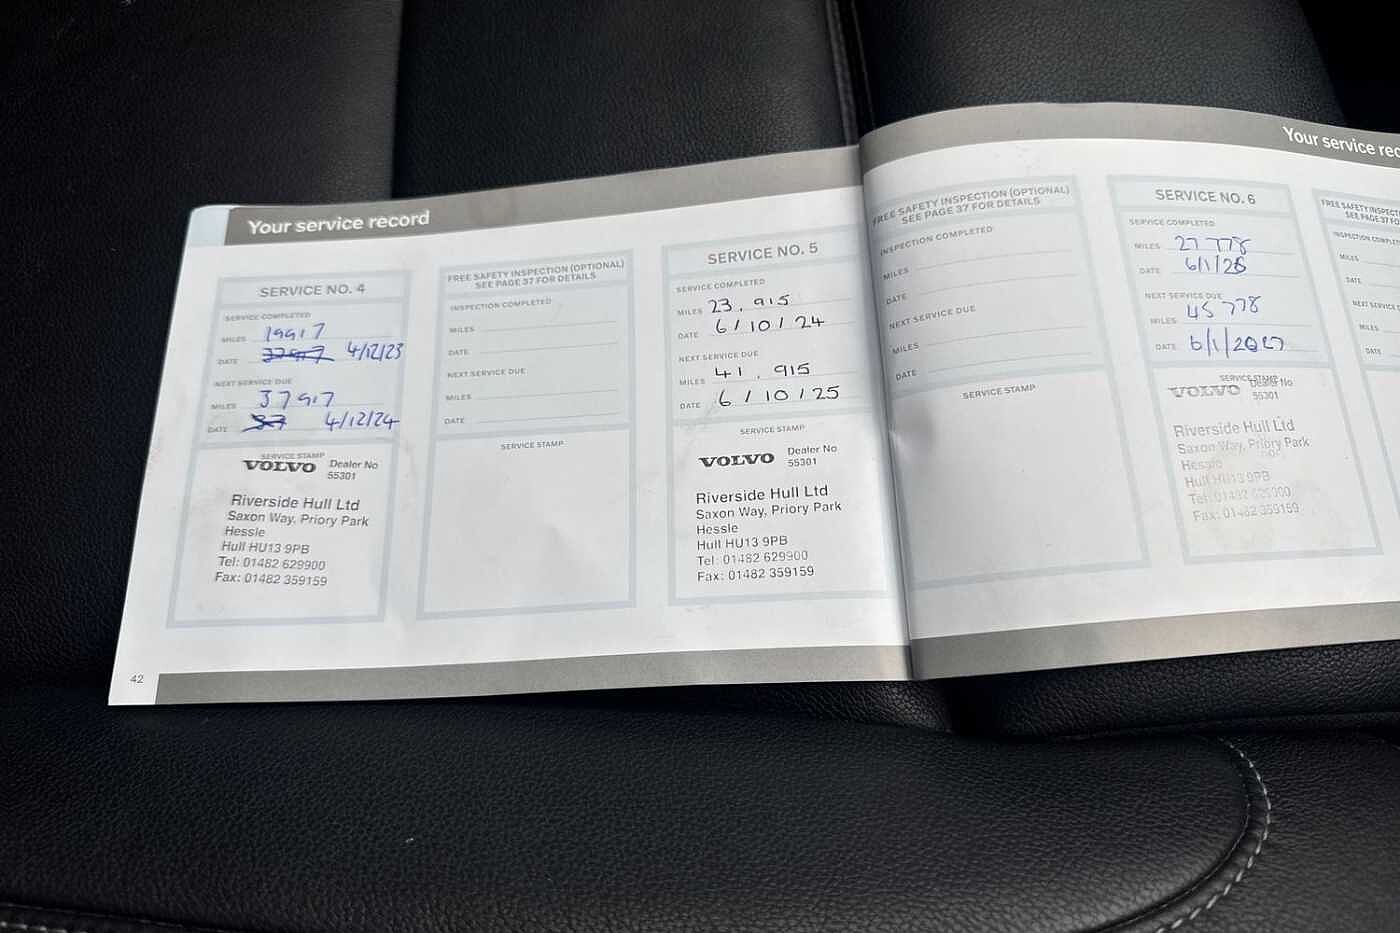 Your service record
SERVICE NO. 4
SERVICE COMPLETED
MILES 19917
DATE 4/12/23
NEXT SERVICE DUE
MILES 37917
DATE 4/12/24
SERVICE STAMP
VOLVO Dealer No
55301
Riverside Hull Ltd
Saxon Way, Priory Park
Hessle
Hull HU13 9PB
Tel: 01482 629900
Fax: 01482 359159
42
FREE SAFETY INSPECTION (OPTIONAL)
SEE PAGE 37 FOR DETAILS
INSPECTION COMPLETED
MILES
DATE
NEXT SERVICE DUE
MILES
DATE
SERVICE STAMP
SERVICE NO. 5
SERVICE COMPLETED
MILES 23,915
DATE 6/10/24
NEXT SERVICE DUE
MILES 41,915
DATE 6/10/25
SERVICE STAMP
VOLVO Dealer No
55301
Riverside Hull Ltd
Saxon Way, Priory Park
Hessle
Hull HU13 9PB
Tel: 01482 629900
Fax: 01482 359159
Your service rec
FREE SAFETY INSPECTION (OPTIONAL)
SEE PAGE 37 FOR DETAILS
INSPECTION COMPLETED
MILES
DATE
NEXT SERVICE DUE
MILES
DATE
SERVICE STAMP
SERVICE NO. 6
SERVICE COMPLETED
MILES 27778
DATE 6/1/26
NEXT SERVICE DUE
MILES 45778
DATE 6/1/2027
SERVICE STAMP
VOLVO Dealer No
55301
Riverside Hull Ltd
Saxon Way, Priory Park
Hessle
Hull HU13 9PB
Tel: 01482 629900
Fax: 01482 359159
FREE SAFETY INSPECT
SEE PAGE 37 FO
INSPECTION COMPLET
MILES
DATE
NEXT SERVICE D
MILES
DATE